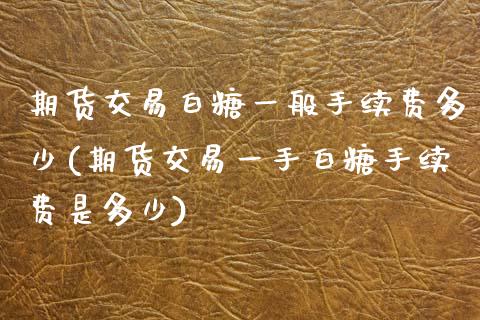 期货交易白糖一般手续费多
少(期货交易一手白糖手续
费是多少)